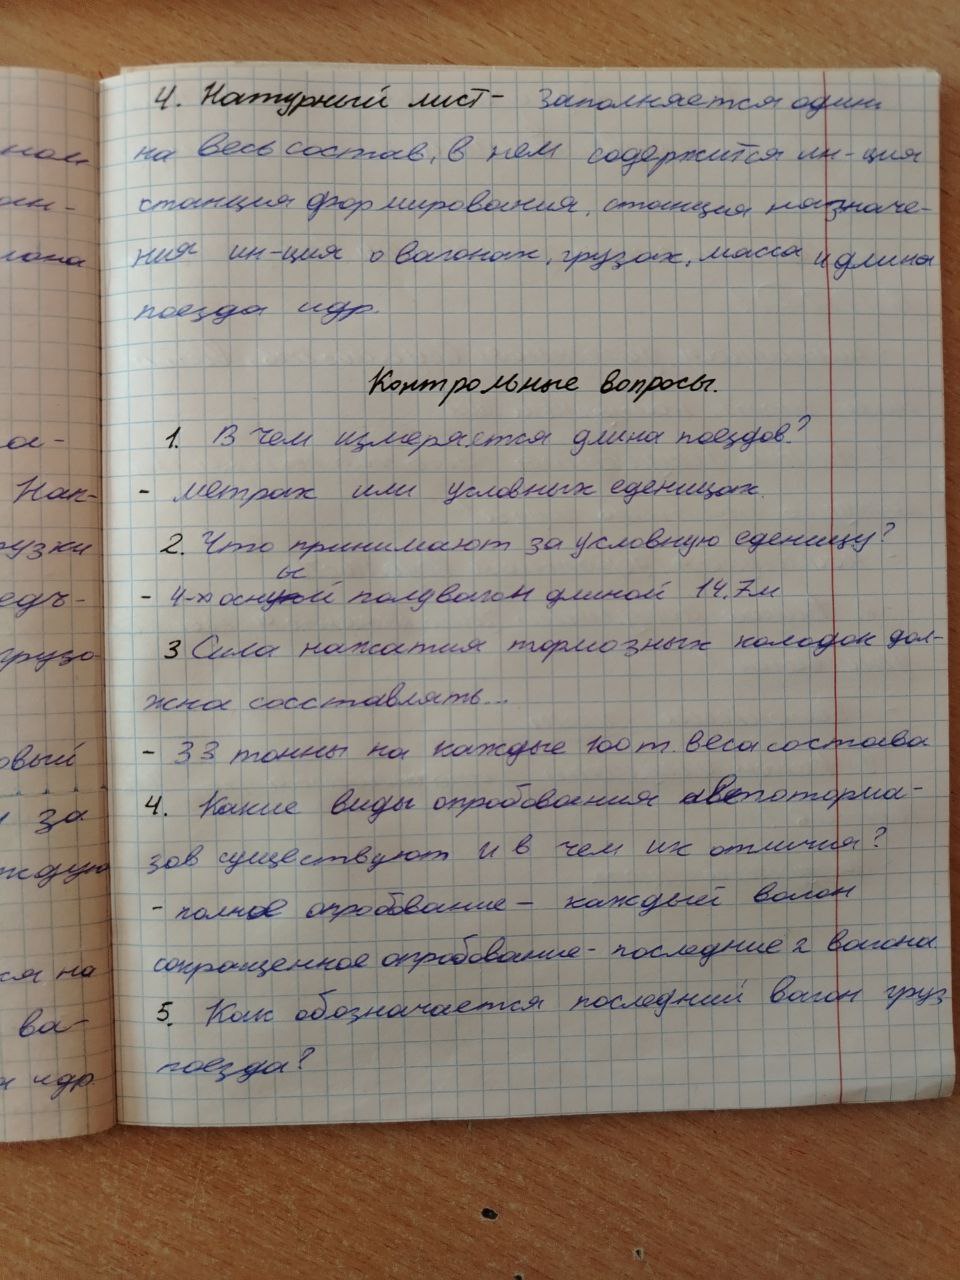 ном
ан-
лона
а-
Нак-
узки
едъ-
грузо
овый
за
ждую
ся на
ва-
и др.
4. Натурный лист - заполняется один
на весь состав, в нем содержится ин-ция
станция формирования, станция назначе-
ния ин-ция о вагонах, грузах, масса и длина
поезда и др.
Контрольные вопросы.
1. В чем измеряется длина поездов?
- метрах или условных еденицах.
2. Что принимают за условную еденицу?
- 4-х осный полувагон длиной 14,7м
3 Сила нажатия тормозных колодок дол-
жна сосставлять...
- 33 тонны на каждые 100 т. веса состава
4. Какие виды опробования автоторма-
зов существуют и в чем их отличия?
- полное опробование - каждый вагон
сокращенное опробование - последние 2 вагона.
5. Как обозначается последний вагон груз
поезда?